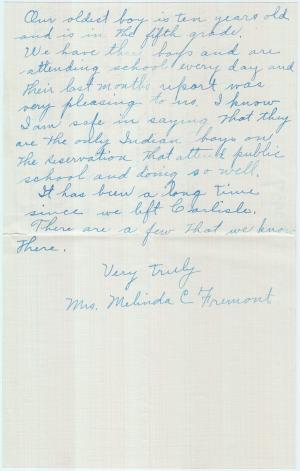 Our oldest boy is ten years old
and is in the fifth grade.
We have three boys and are
attending school every day and
their last months report was
very pleasing to us. I know
I am safe in saying that they
are the only Indian boys on
the reservation that attend public
school and doing so well.
It has been a long time
since we left Carlisle.
There are a few that we know
there.
Very truly
Mrs. Melinda C Fremont